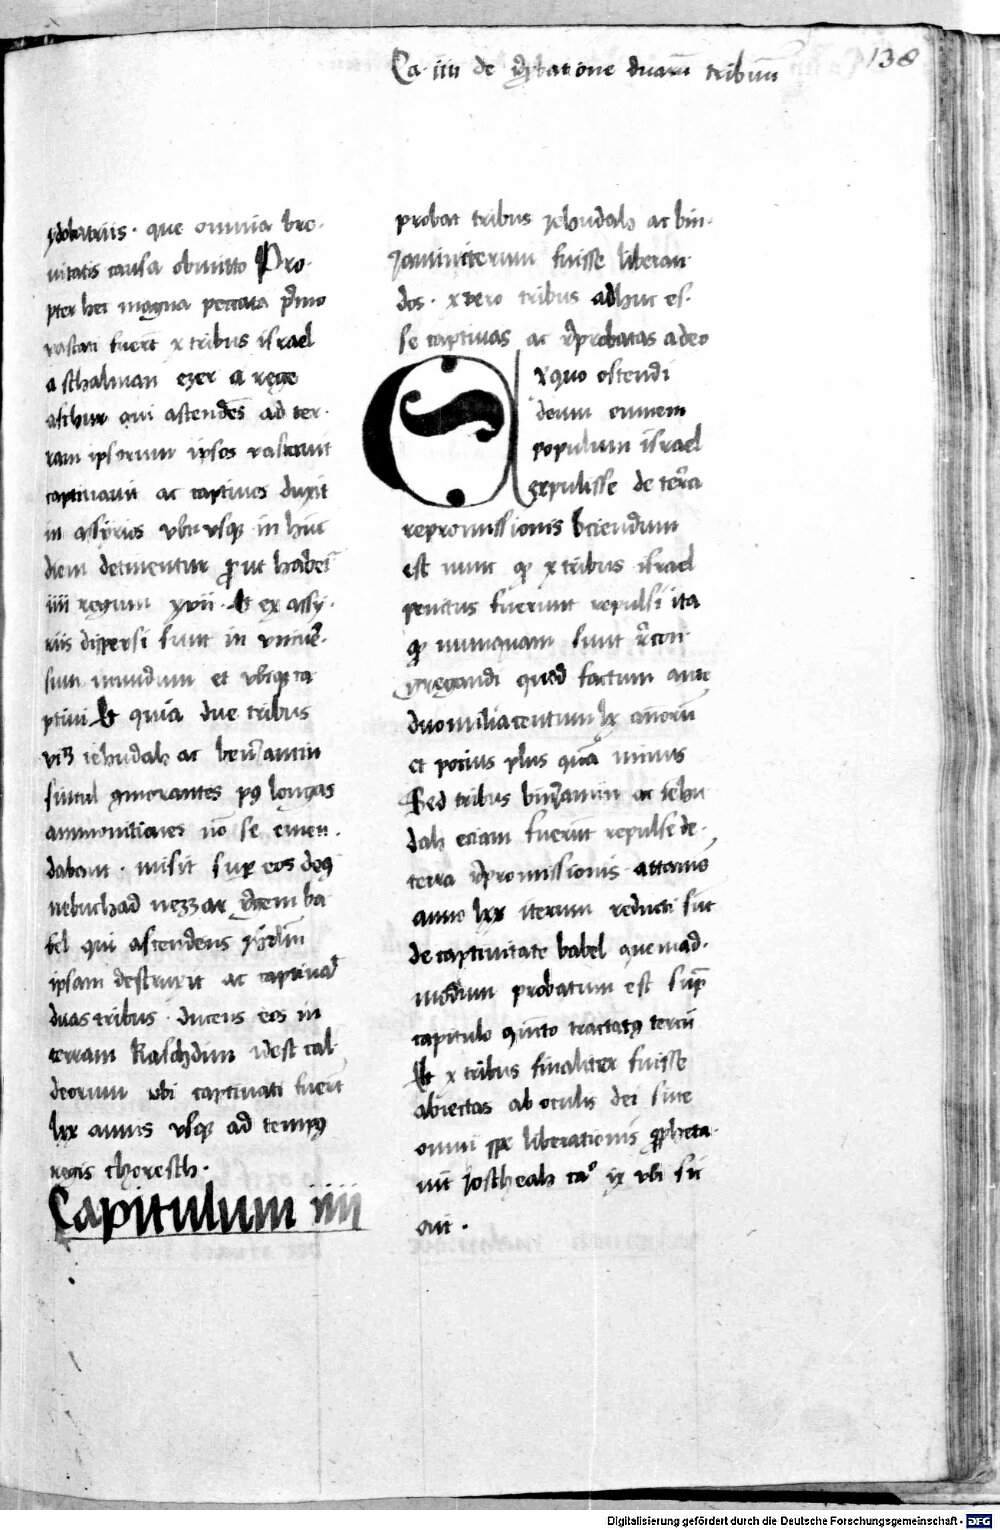 Ca. iiii de ꝓbatione duarū tribuū
138
ydolatriis. que omnia bre
uitatis causa obmitto Pro
pter hec magna peccata pͥmo
vastati fuerūt x tribus israel
a schalman ezer a rege
aschur qui ascendēs ad ter
ram ipsorum ipsos vastauit
captiuauit ac captiuos duxit
in assyrios vbi vsqꝫ in hūc
diem detinentur ꝓut habet̄
iiii regum xvii. Et ex assy
riis dispersi sunt in vniuer
sum mundum et vbiqꝫ ca
ptiui Et quia due tribus
vꝫ iehudah ac beniamin
simul ignorantes pꝰ longas
ammonitiones nō se emen
dabant. misit suꝑ eos deꝰ
nebuchad nezzar regem ba
bel qui ascendens
ipsam destruxit ac captiuauit
duas tribus. ducens eos in
terram Kaschdim idest cal
deorum vbi captiuati fuerūt
lxx annis vsqꝫ ad tempꝰ
regis choresch.
Capitulum iiii
probat tribus Jehudah ac bin
Jaminiterum fuisse liberan
dos. x vero tribus adhuc es
se captiuas ac reprobatas a deo
Exquo ostendi
deum omnem
populum israel
expulisse de terra
repromissionis sciendum
est nunc ꝙ x tribus israel
penitus fuerunt repulsi ita
ꝙ nunquam sunt recon
gregandi quod factum ante
duomiliacentum lx annorū
et pocius plus quā minus
Sed tribus biniamin ac Jehu
dah eciam fuerūt repulse de
terra repromissionis attamē
anno lxx iterum reducti sūt
de captiuitate babel quemad
modum probatum est supra
capitulo quinto tractatꝰ tercii
Et x tribus finaliter fuisse
abiectas ab oculis dei sine
omni spe liberationis ꝓpheta
uit Joscheah caº ix vbi sic
ait.
Digitalisierung gefördert durch die Deutsche Forschungsgemeinschaft - DFG